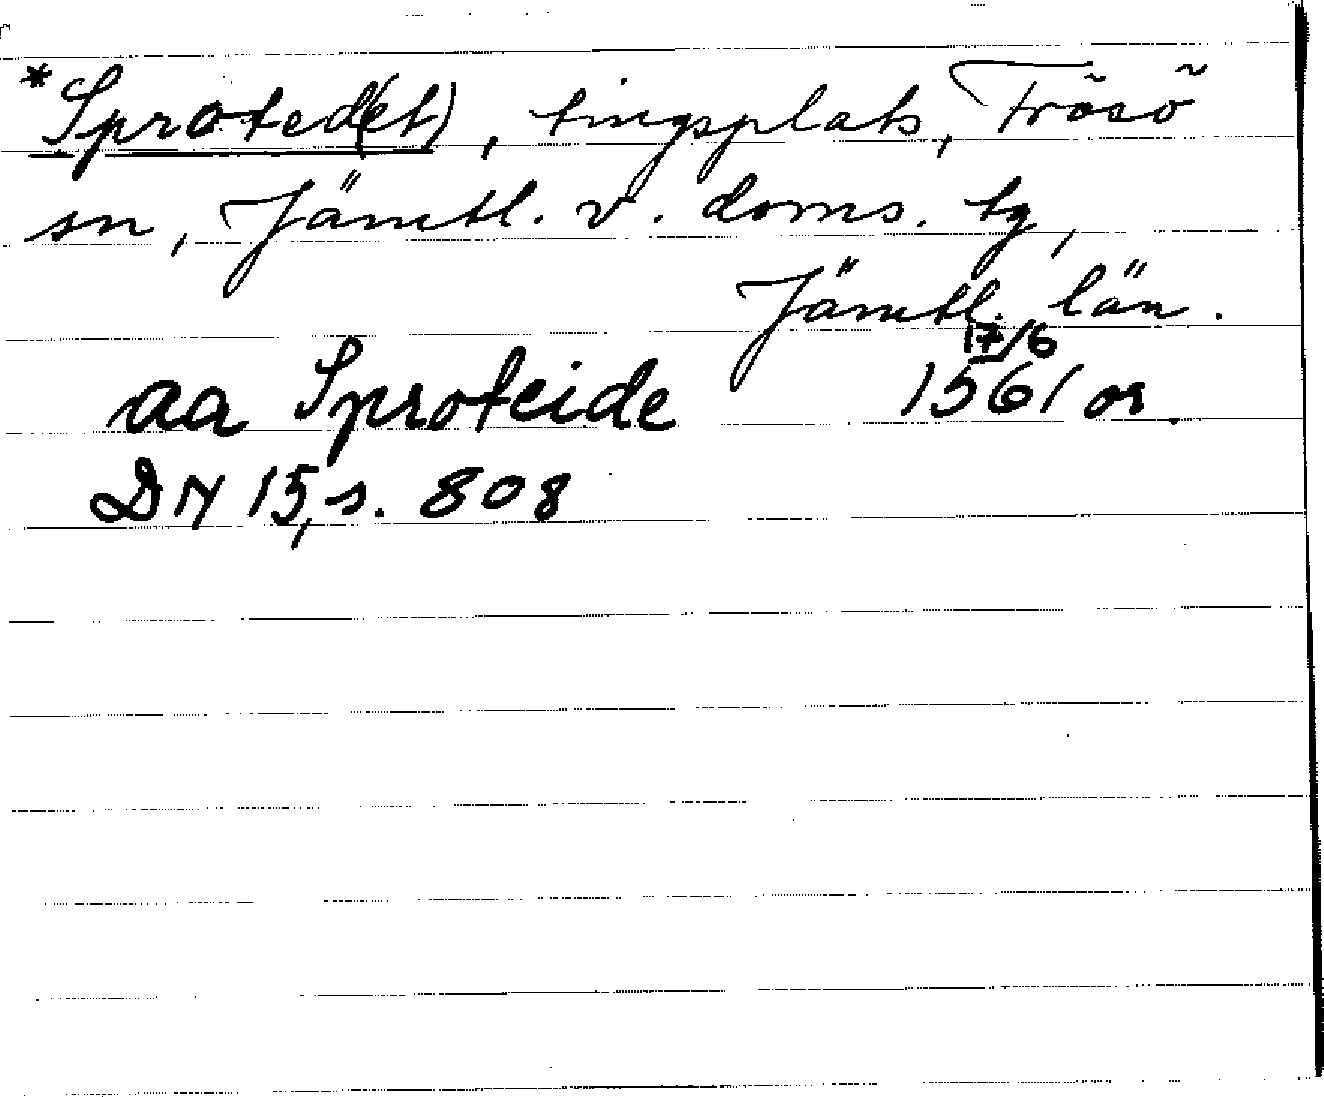 *Sproted(et), tingsplats, Frösö
sn, Jämtl. v. doms. tg,
Jämtl. län.
17/6
aa Sproteide 1561 or.
DN 15, s. 808